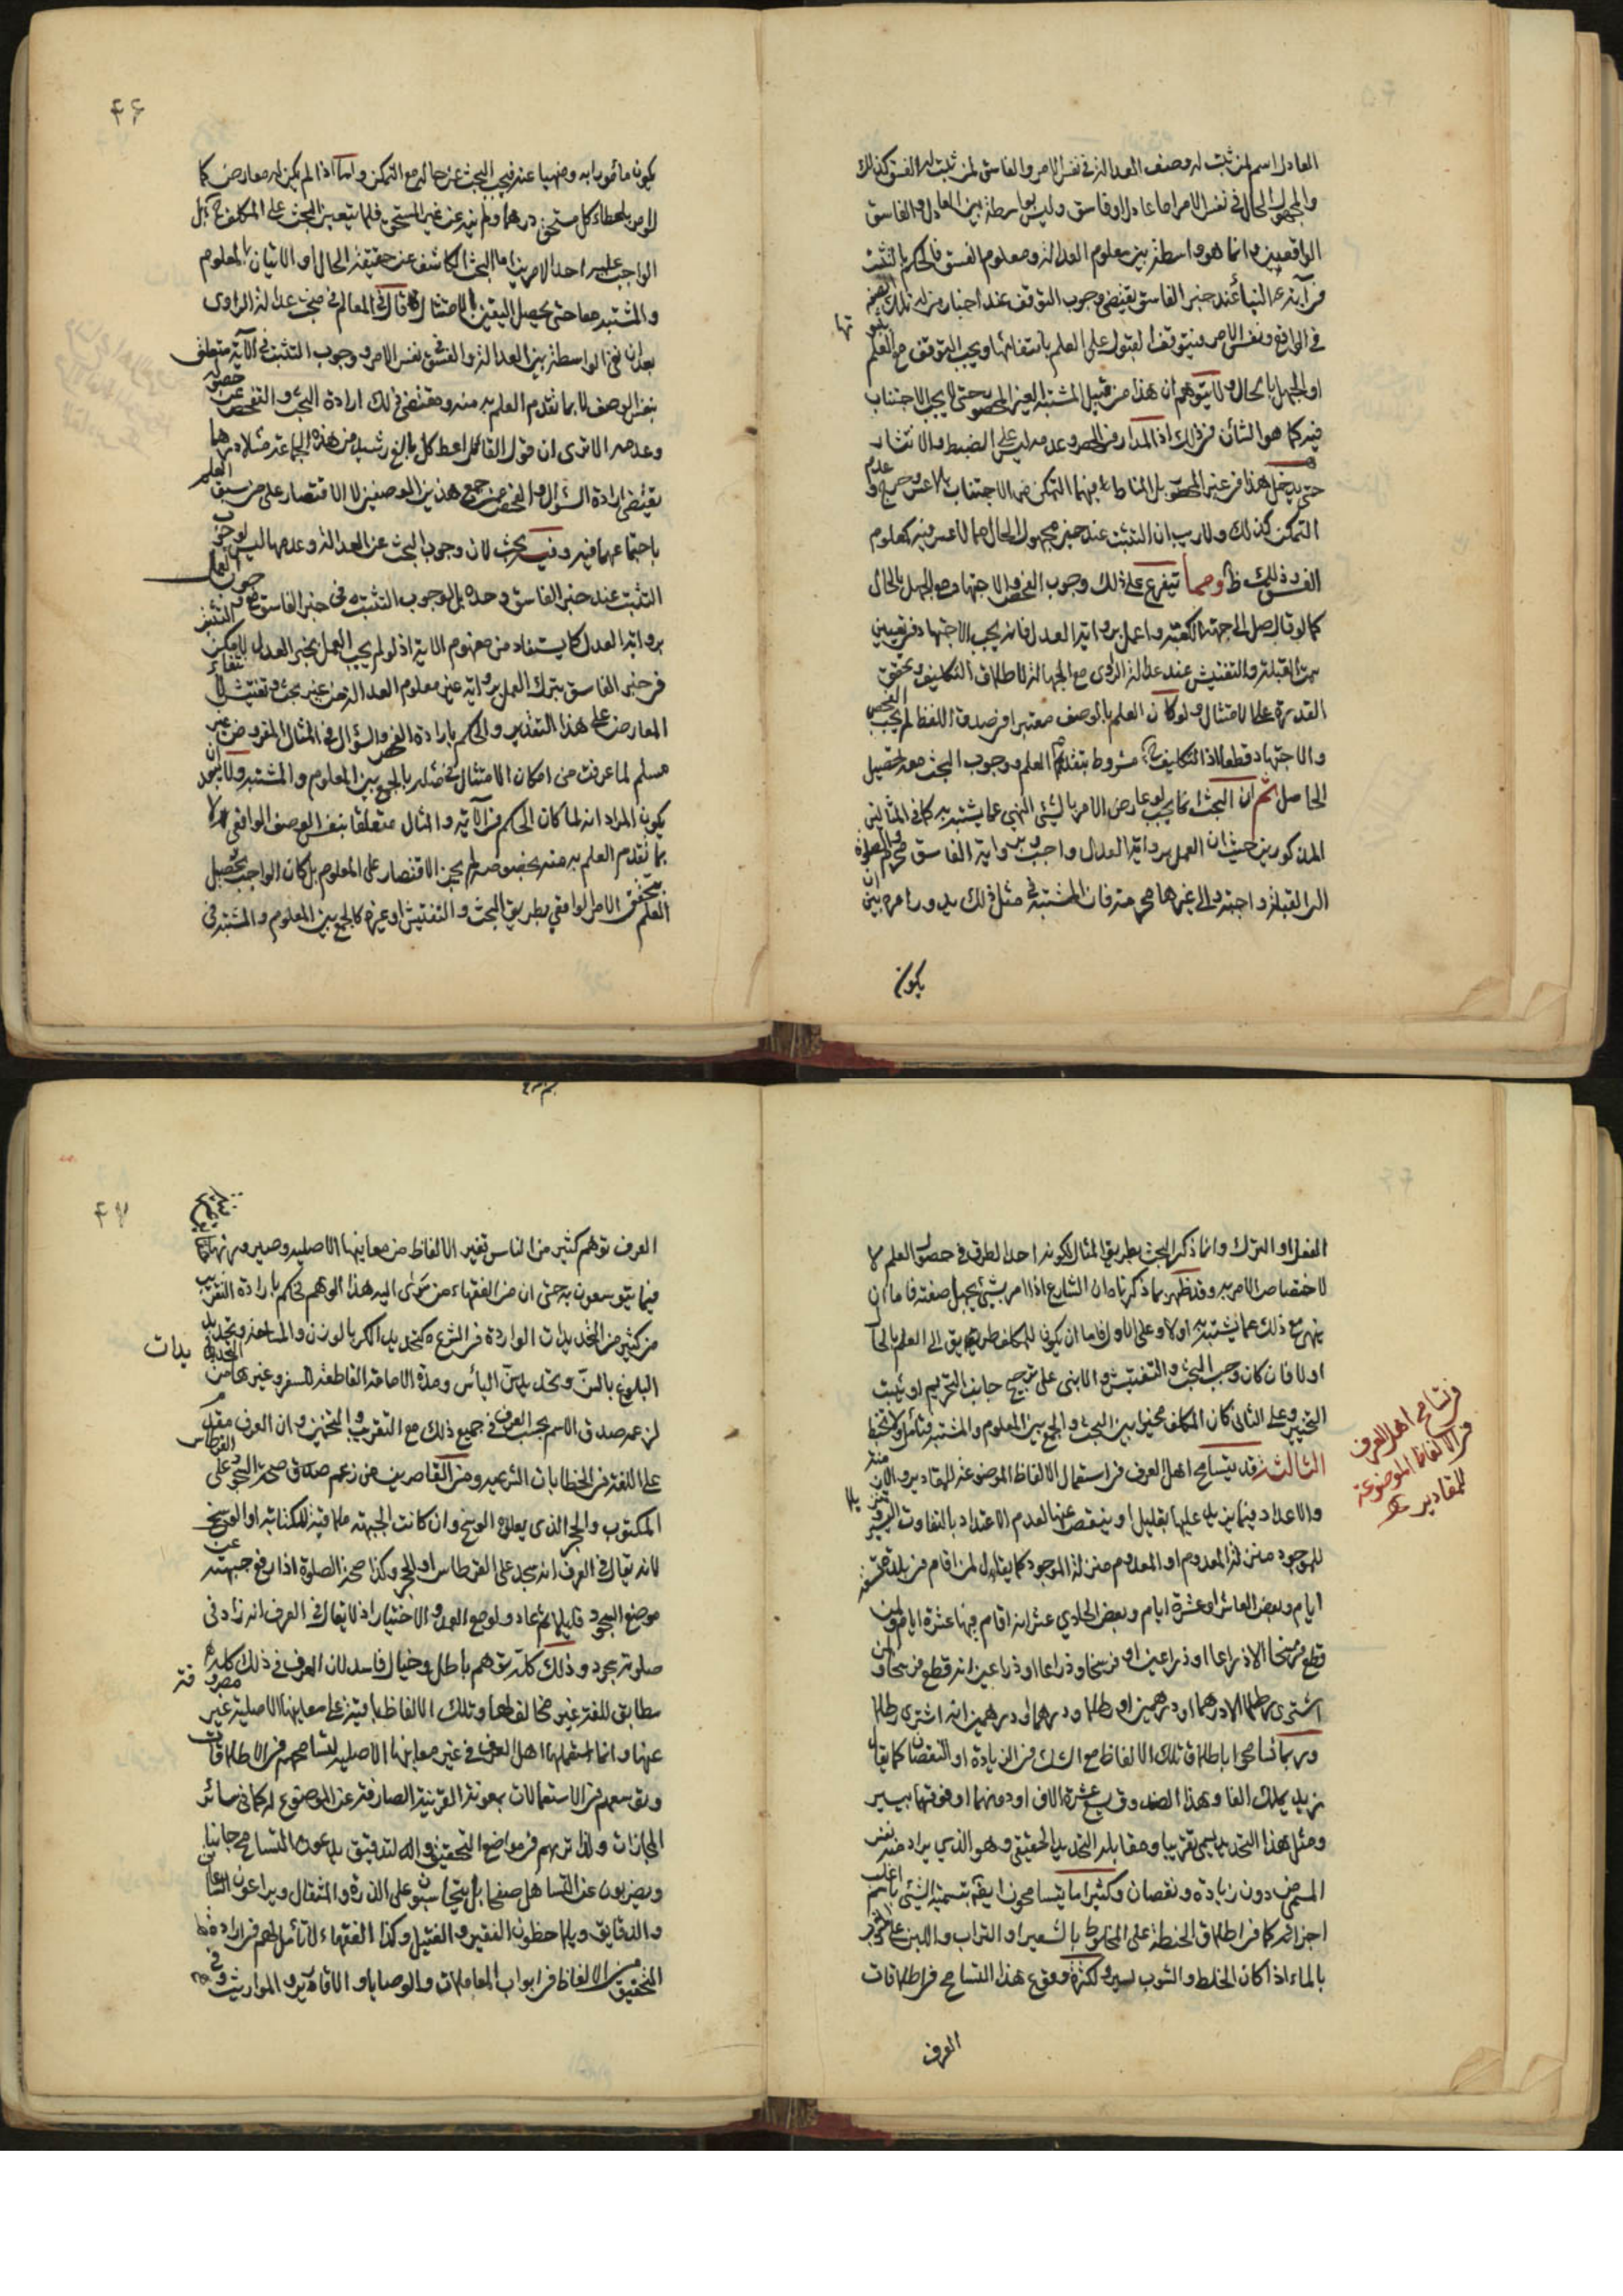 العادل اسم لمن ثبت له وصف العدالة في نفس الامر والفاسق لمن ثبت له الفسق كذلك
والمجهول الحال في نفس الامر اما عادل او فاسق وليس واسطة بين العادل والفاسق
الواقعيين وانما هو واسطة بين معلوم العدالة ومعلوم الفسق فالحكم بالتثبت
في آية النبأ عند خبر الفاسق يقتضي وجوب التوقف عند اخبار من له تلك الصفة
في الواقع ونفس الامر فيتوقف القبول على العلم بانتفائها ويجب التوقف مع العلم بثبوتها
او الجهل بالحال ولا يتوهم ان هذا من قبيل المشتبه الغير المحصور حتى لا يجب الاجتناب
فيه كما هو الشأن في ذلك اذ المدار في الحصر وعدمه ليس على الضبط والانتشار
حتى يدخل هذا في غير المحصور بل المناط فيهما التمكن من الاجتناب بلا عسر وحرج وعدم
التمكن كذلك ولا ريب ان التثبت عند خبر مجهول الحال مما لا عسر فيه كمعلوم
الفسق وذلك ظ ومما يتفرع على ذلك وجوب الفحص والاجتهاد مع الجهل بالحال
كما لو قال صل الى جهة الكعبة واعمل برواية العدل فانه يجب الاجتهاد في تعيين
سمت القبلة والتفتيش عند عدالة الراوي مع الجهالة لاطلاق التكليف وتحقق
القدرة على الامتثال ولو كان العلم بالوصف معتبرا في صدق اللفظ لم يجب الفحص
والاجتهاد قطعا اذ التكليف ح مشروط بتقدم العلم ووجوب البحث معه تحصيل
الحاصل ثم ان البحث انما يجب لو عارض الامر بالشيء النهي عما يشتبه به كما في المثالين
المذكورين حيث ان العمل برواية العدل واجب وبرواية الفاسق محرم والصلوة
الى القبلة واجبة والى غيرها محرمة فان المشتبه في مثل ذلك يدور امره بين ان
يكون
۴۶
يكون مأمورا به ومنهيا عنه فيجب البحث عن حاله مع التمكن واما اذا لم يكن له معارض كما
لو امر باعطاء كل مستحق درهما ولم ينه عن غير المستحق فلا يتعين البحث على المكلف ح بل
الواجب عليه احد الامرين اما البحث الكاشف عن حقيقة الحال او الاتيان بالمعلوم
والمشتبه معا حتى يحصل اليقين بالامتثال قال في المعالم في مبحث عدالة الراوي
بعد ان نفى الواسطة بين العدالة والفسق في نفس الامر ووجوب التثبت في الآية متعلق
بنفس الوصف لا بما تقدم العلم به منه ومقتضى ذلك ارادة البحث والتفحص عن حصوله
وعدمه الا ترى ان قول القائل اعط كل بالغ رشيد من هذه الجماعة مثلا درهما
يقتضي ارادة السؤال والفحص عمن جمع هذين الوصفين لا الاقتصار على من سبق العلم
باجتماعهما فيه وفيه بحث لان وجوب البحث عن العدالة وعدمها ليس لوجوب
التثبت عند خبر الفاسق وحده بل لوجوب التثبت في خبر الفاسق مع وجوب العمل
برواية العدل كما يستفاد من مفهوم الآية اذ لو لم يجب العمل بخبر العدل لامكن التثبت
في خبر الفاسق بترك العمل برواية غير معلوم العدالة من غير بحث وتفتيش لانتفاء
المعارض على هذا التقدير والحكم بارادة الفحص والسؤال في المثال المفروض غير
مسلم لما عرفت من امكان الامتثال في مثله بالجمع بين المعلوم والمشتبه ولا يبعد ان
يكون المراد انه لما كان الحكم في الآية والمثال متعلقا بنفس الوصف الواقعي لا
بما تقدم العلم به منه بخصوصه لم يجز الاقتصار على المعلوم بل كان الواجب تحصيل
العلم بتحقق الامر الواقعي بطريق البحث والتفتيش او غيره كالجمع بين المعلوم والمشتبه في
الفعل او الترك وانما ذكر البحث بطريق المثال لكونه احد الطرق في حصول العلم لا
لاختصاص الامر به وقد ظهر بما ذكرناه ان الشارع اذا امر بشيء يجهل صفته فاما ان
ينهى مع ذلك عما يشتبه به او لا وعلى الاول فاما ان يكون للمكلف طريق الى العلم بالحال
او لا فان كان وجب البحث والتفتيش والا بنى على ترجيح جانب التحريم او يثبت
التخيير وعلى الثاني كان المكلف مخيرا بين البحث والجمع بين المعلوم والمشتبه فتأمل ولا تخبط
الثالثة قد يتسامح اهل العرف في استعمال الالفاظ الموضوعة للمقادير والازمنة
والاعداد فيما يزيد عليها بقليل او ينقص عنها لعدم الاعتداد بالتفاوت اليسير تنزيلا
للموجود منزلة المعدوم او المعدوم منزلة الموجود كما يقال لمن اقام في بلدة تسعة
ايام وبعض العاشر او عشرة ايام وبعض الحادي عشر انه اقام فيها عشرة ايام ولمن
قطع فرسخا الا ذراعا او ذراعين او فرسخا وذراعا او ذراعين انه قطع فرسخا ولمن
اشترى رطلا الا درهما او درهمين او رطلا ودرهما او درهمين انه اشترى رطلا
وربما تسامحوا باطلاق تلك الالفاظ مع الشك في الزيادة او النقصان كما يقال
زيد يملك الفا وهذا الصندوق يسع عشرة آلاف او دونهما او فوقهما بيسير
ومثل هذا التحديد يسمى تقريبا ومقابله التحديد الحقيقي وهو الذي يراد منه نفس
المسمى من دون زيادة ونقصان وكثيرا ما يتسامحون ايضا بتسمية الشيء باسم اغلب
اجزائه كما في اطلاق الحنطة على المخلوط بالشعير او التراب واللبن على المشوب
بالماء اذا كان الخلط والشوب يسيرا ولكثرة وقوع هذا التسامح في اطلاقات
العرف
في تسامح اهل العرف
في الالفاظ الموضوعة
للمقادير
۴۷
العرف توهم كثير من الناس تغير الالفاظ من معانيها الاصلية وصيرورتها حقائق
فيما يتوسعون به حتى ان من الفقهاء من سرى اليه هذا الوهم فحكم بارادة التقريب
من كثير من التحديدات الواردة في الشرع كتحديد الكر بالوزن والمساحة وتحديد
البلوغ بالسن وتحديد سن اليأس ومدة الاقامة القاطعة للسفر وغيرها من التحديدات
لزعمه صدق الاسم بحسب العرف في جميع ذلك مع التقريب والتخمين وان العرف مقدم
على اللغة في الخطابات الشرعية ومن القاصرين من زعم صدق صحة السجود على القرطاس
المكتوب والحجر الذي يعلوه الوسخ وان كانت الجبهة ملاقية للكتابة او الوسخ
لانه يقال في العرف انه سجد على القرطاس او الحجر وكذا صحة الصلوة اذا رفع جبهته عن
موضع السجود قليلا ثم عاد ولو مع العمد والاختيار اذ لا يقال في العرف انه زاد في
صلوته سجود وذلك كله توهم باطل وخيال فاسد لان العرف في ذلك كله
مطابق للغة غير مخالف لها وتلك الالفاظ باقية على معانيها الاصلية غير مصروفة
عنها وانما استعملها اهل العرف في غير معانيها الاصلية لتسامحهم في الاطلاقات
وتوسعهم في الاستعمالات بمعونة القرينة الصارفة عن الموضوع له كما في سائر
المجازات ولذا تريهم في مواضع التحقيق والتدقيق يدعون التسامح جانبا
ويضربون عن التساهل صفحا بل يتحاسبون على الذرة والمثقال ويراعون الساعات
والدقايق ويلاحظون النقير والفتيل وكذا الفقهاء لا تأمل لهم في ارادة
التحقيق من الالفاظ في ابواب المعاملات والوصايا والاقارير والمواريث وفي